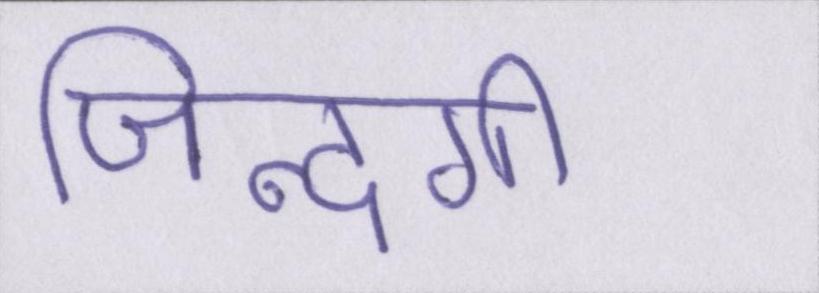 जिन्दगी